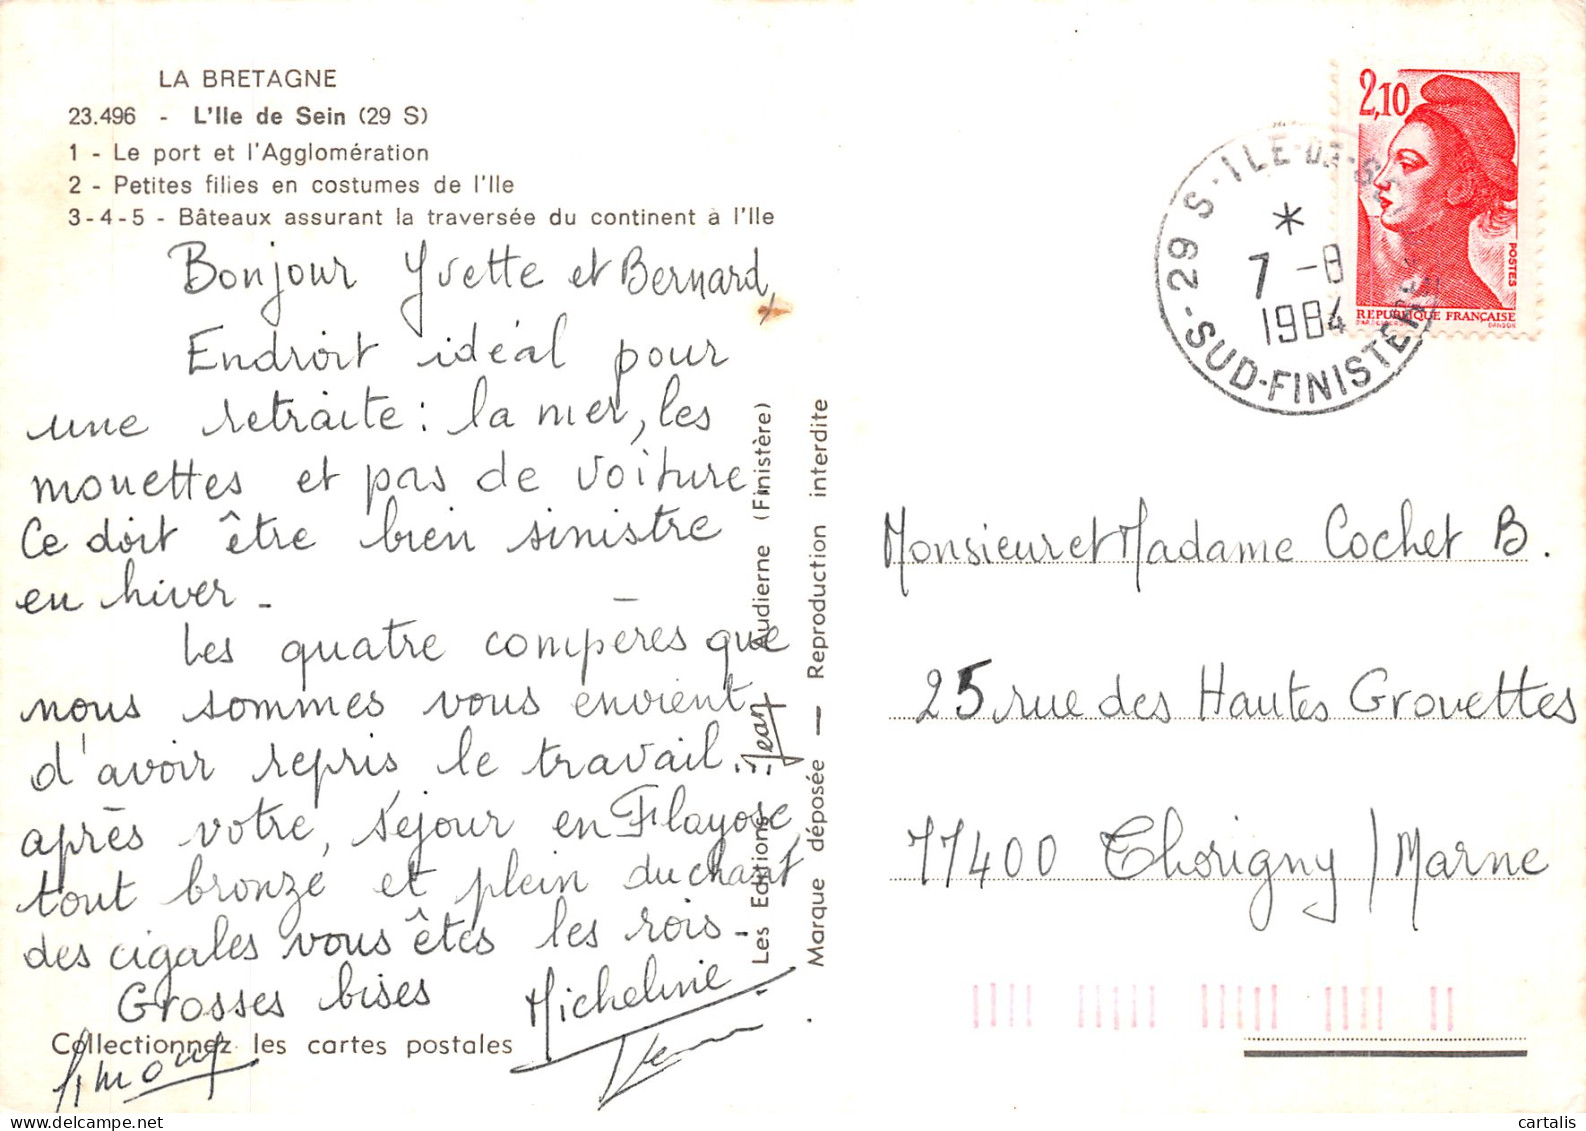 LA BRETAGNE
23.496 - L'Ile de Sein (29 S)
1 - Le port et l'Agglomération
2 - Petites filies en costumes de l'Ile
3-4-5 - Bâteaux assurant la traversée du continent à l'Ile
Bonjour Yvette et Bernard,
Endroit idéal pour
une retraite : la mer, les
mouettes et pas de voiture
Ce doit être bien sinistre
en hiver -
Les quatre compères que
nous sommes vous envient
d'avoir repris le travail...
après votre séjour en Flayosc,
tout bronzé et plein du chant
des cigales vous êtes les rois -
Grosses bises Micheline
Collectionnez les cartes postales
Simone
Jean
Les Editions Jean Audierne (Finistère)
Marque déposée — Reproduction interdite
2,10
POSTES
REPUBLIQUE FRANÇAISE
29 S-ILE-DE-SEIN
*
7 -8
1984
SUD-FINISTERE
Monsieur et Madame Cochet B.
25 rue des Hautes Grouettes
77400 Thorigny / Marne
cartalis